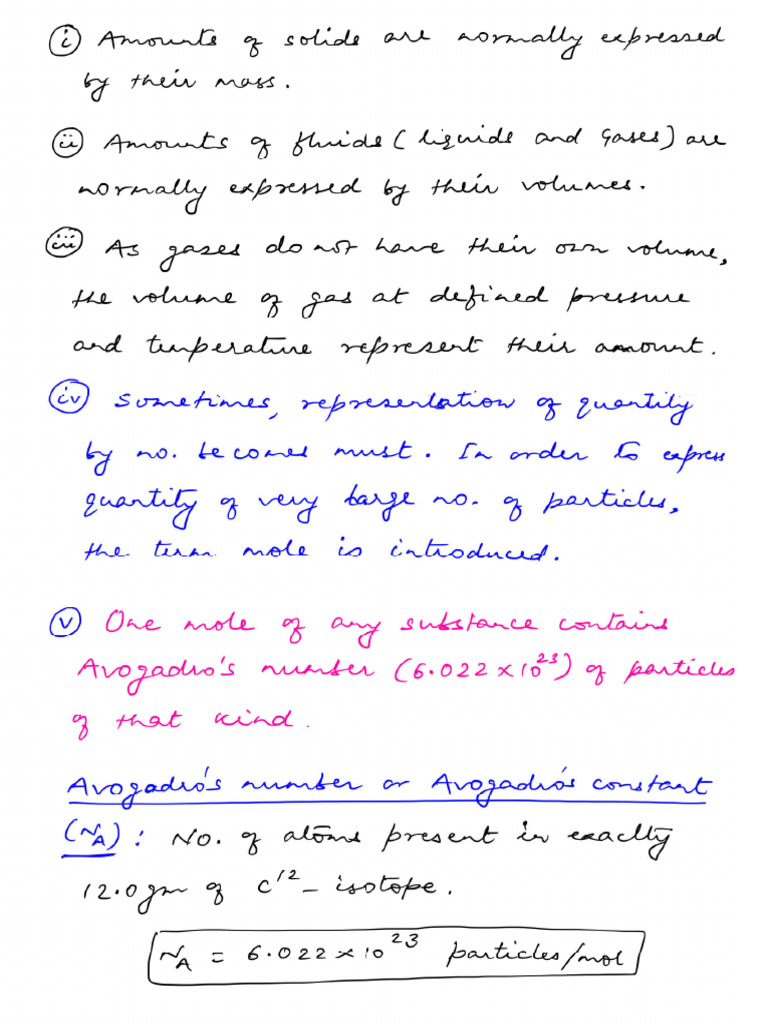 (i) Amounts of solids are normally expressed
by their mass.
(ii) Amounts of fluids (liquids and Gases) are
normally expressed by their volumes.
(iii) As gases do not have their own volume,
the volume of gas at defined pressure
and temperature represent their amount.
(iv) Sometimes, representation of quantity
by no. becomes must. In order to express
quantity of very large no. of particles,
the term mole is introduced.
(v) One mole of any substance contains
Avogadro's number (6.022 × 10²³) of particles
of that kind.
Avogadro's number or Avogadro's constant
(N_A): No. of atoms present in exactly
12.0 gm of C¹² - isotope.
N_A = 6.022 × 10²³ particles/mol